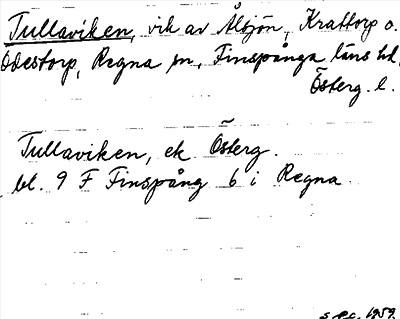 Tullaviken, vik av Ålsjön, Krattorp o.
Odestorp, Regna sn, Finspånga läns hd,
Österg. l.
Tullaviken, ek Österg.
bl. 9 F Finspång 6 i Regna
1959